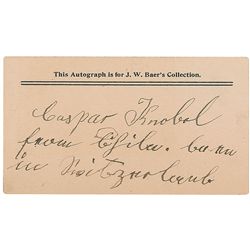 This Autograph is for J. W. Baer's Collection.
Caspar Knobel
from Phila. born
in Switzerland